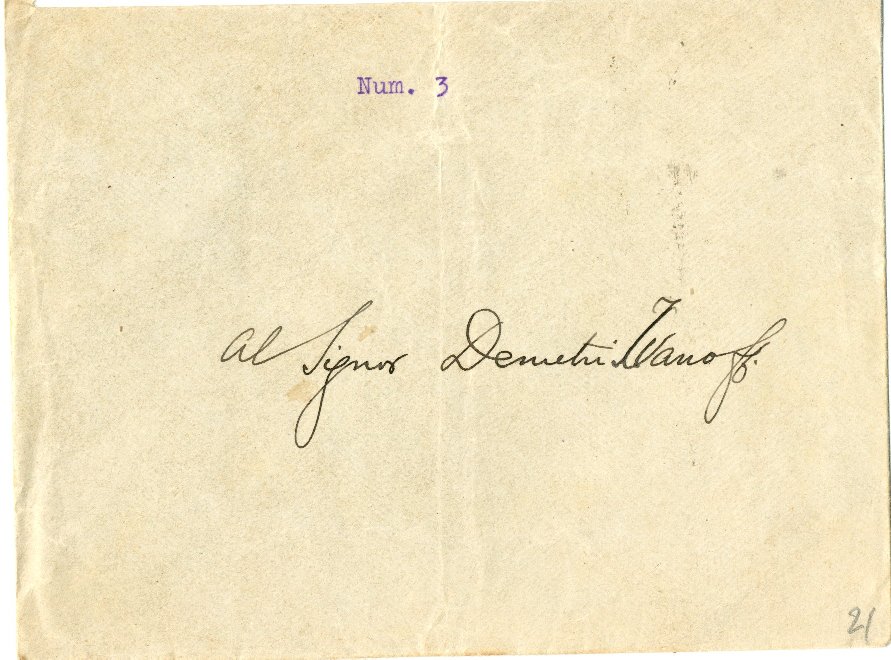 Num. 3
Al Signor Demetri Ivanoff.
21